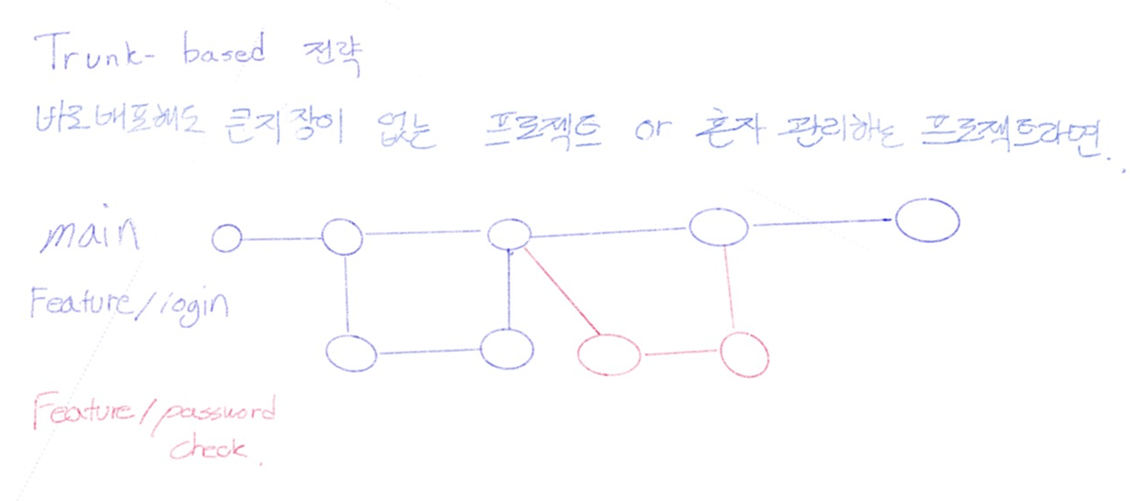 Trunk- based 전략
바로배포해도 큰지장이 없는 프로젝트 or 혼자 관리하는 프로젝트라면..
main
Feature/login
Feature/password
check.